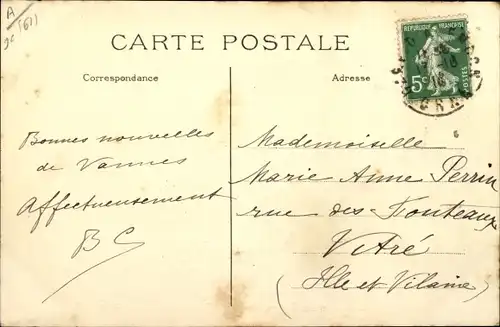 A
(61)
CARTE POSTALE
Correspondance
Adresse
REPUBLIQUE FRANÇAISE
5c
POSTES
Bonnes nouvelles
de Vannes
Affectueusement
BC
Mademoiselle
Marie Anne Perrin
rue des Fonteaux
Vitré
(Ille et Vilaine)